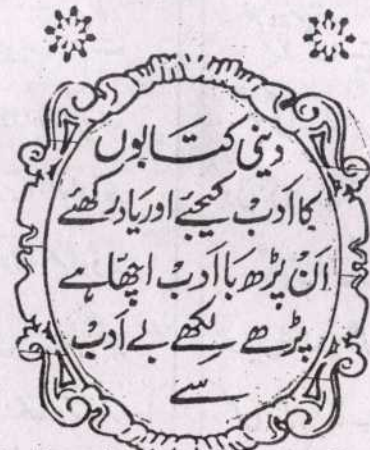 دینی کتابوں
کا ادب کیجئے اور یاد رکھئے
ان پڑھ با ادب اچھا ہے
پڑھے لکھے بے ادب
سے